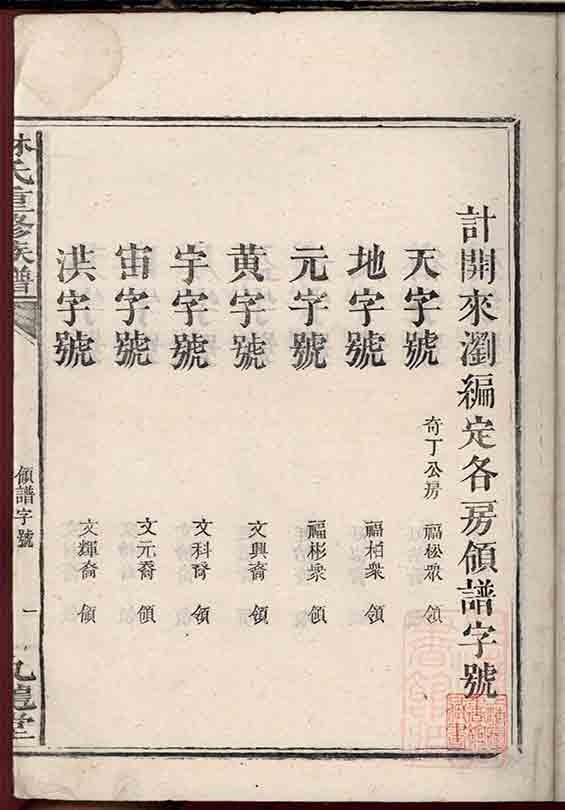 計開來瀏編定各房領譜字號
天字號 奇丁公房 福松眾 領
地字號 福柏眾 領
元字號 福彬衆 領
黄字號 文興裔 領
宇字號 文科裔 領
宙字號 文元裔 領
洪字號 文輝裔 領
林氏重修族譜 領譜字號 一 九龍堂